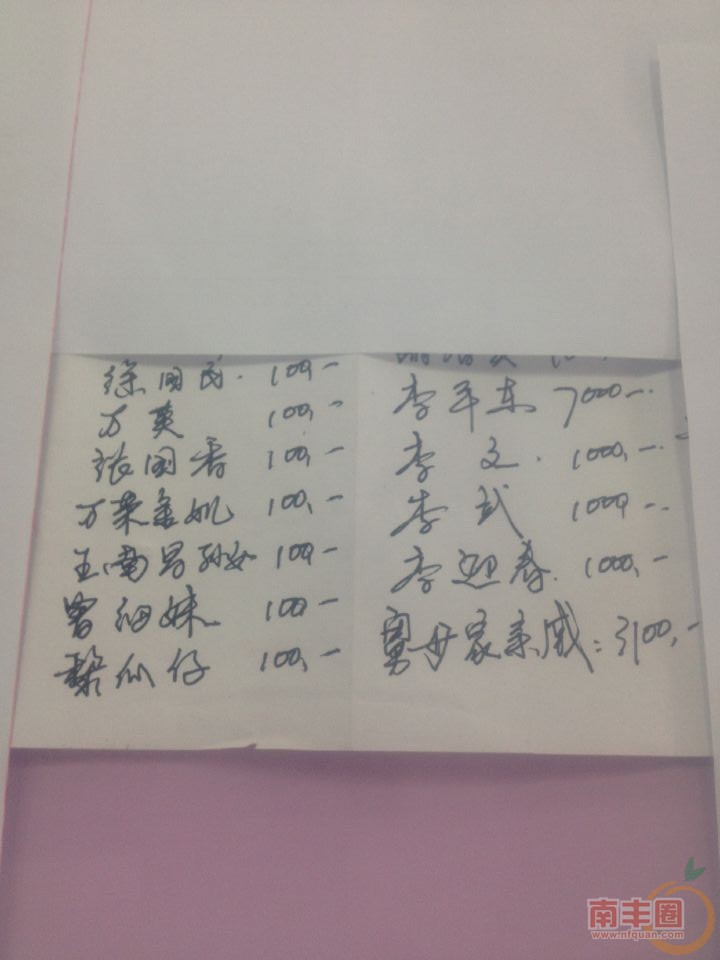 徐国民. 100,-
万英 100,-
张国香 100,-
万荣金儿 100,-
王南昌孙女 100,-
曾细妹 100-
黎仙仔 100,-
李平东 7000-.
李文. 1000,-.
李武 1000-.
李迎春. 1000,-
舅母家亲戚: 3100,-
南丰圈
www.nfquan.com